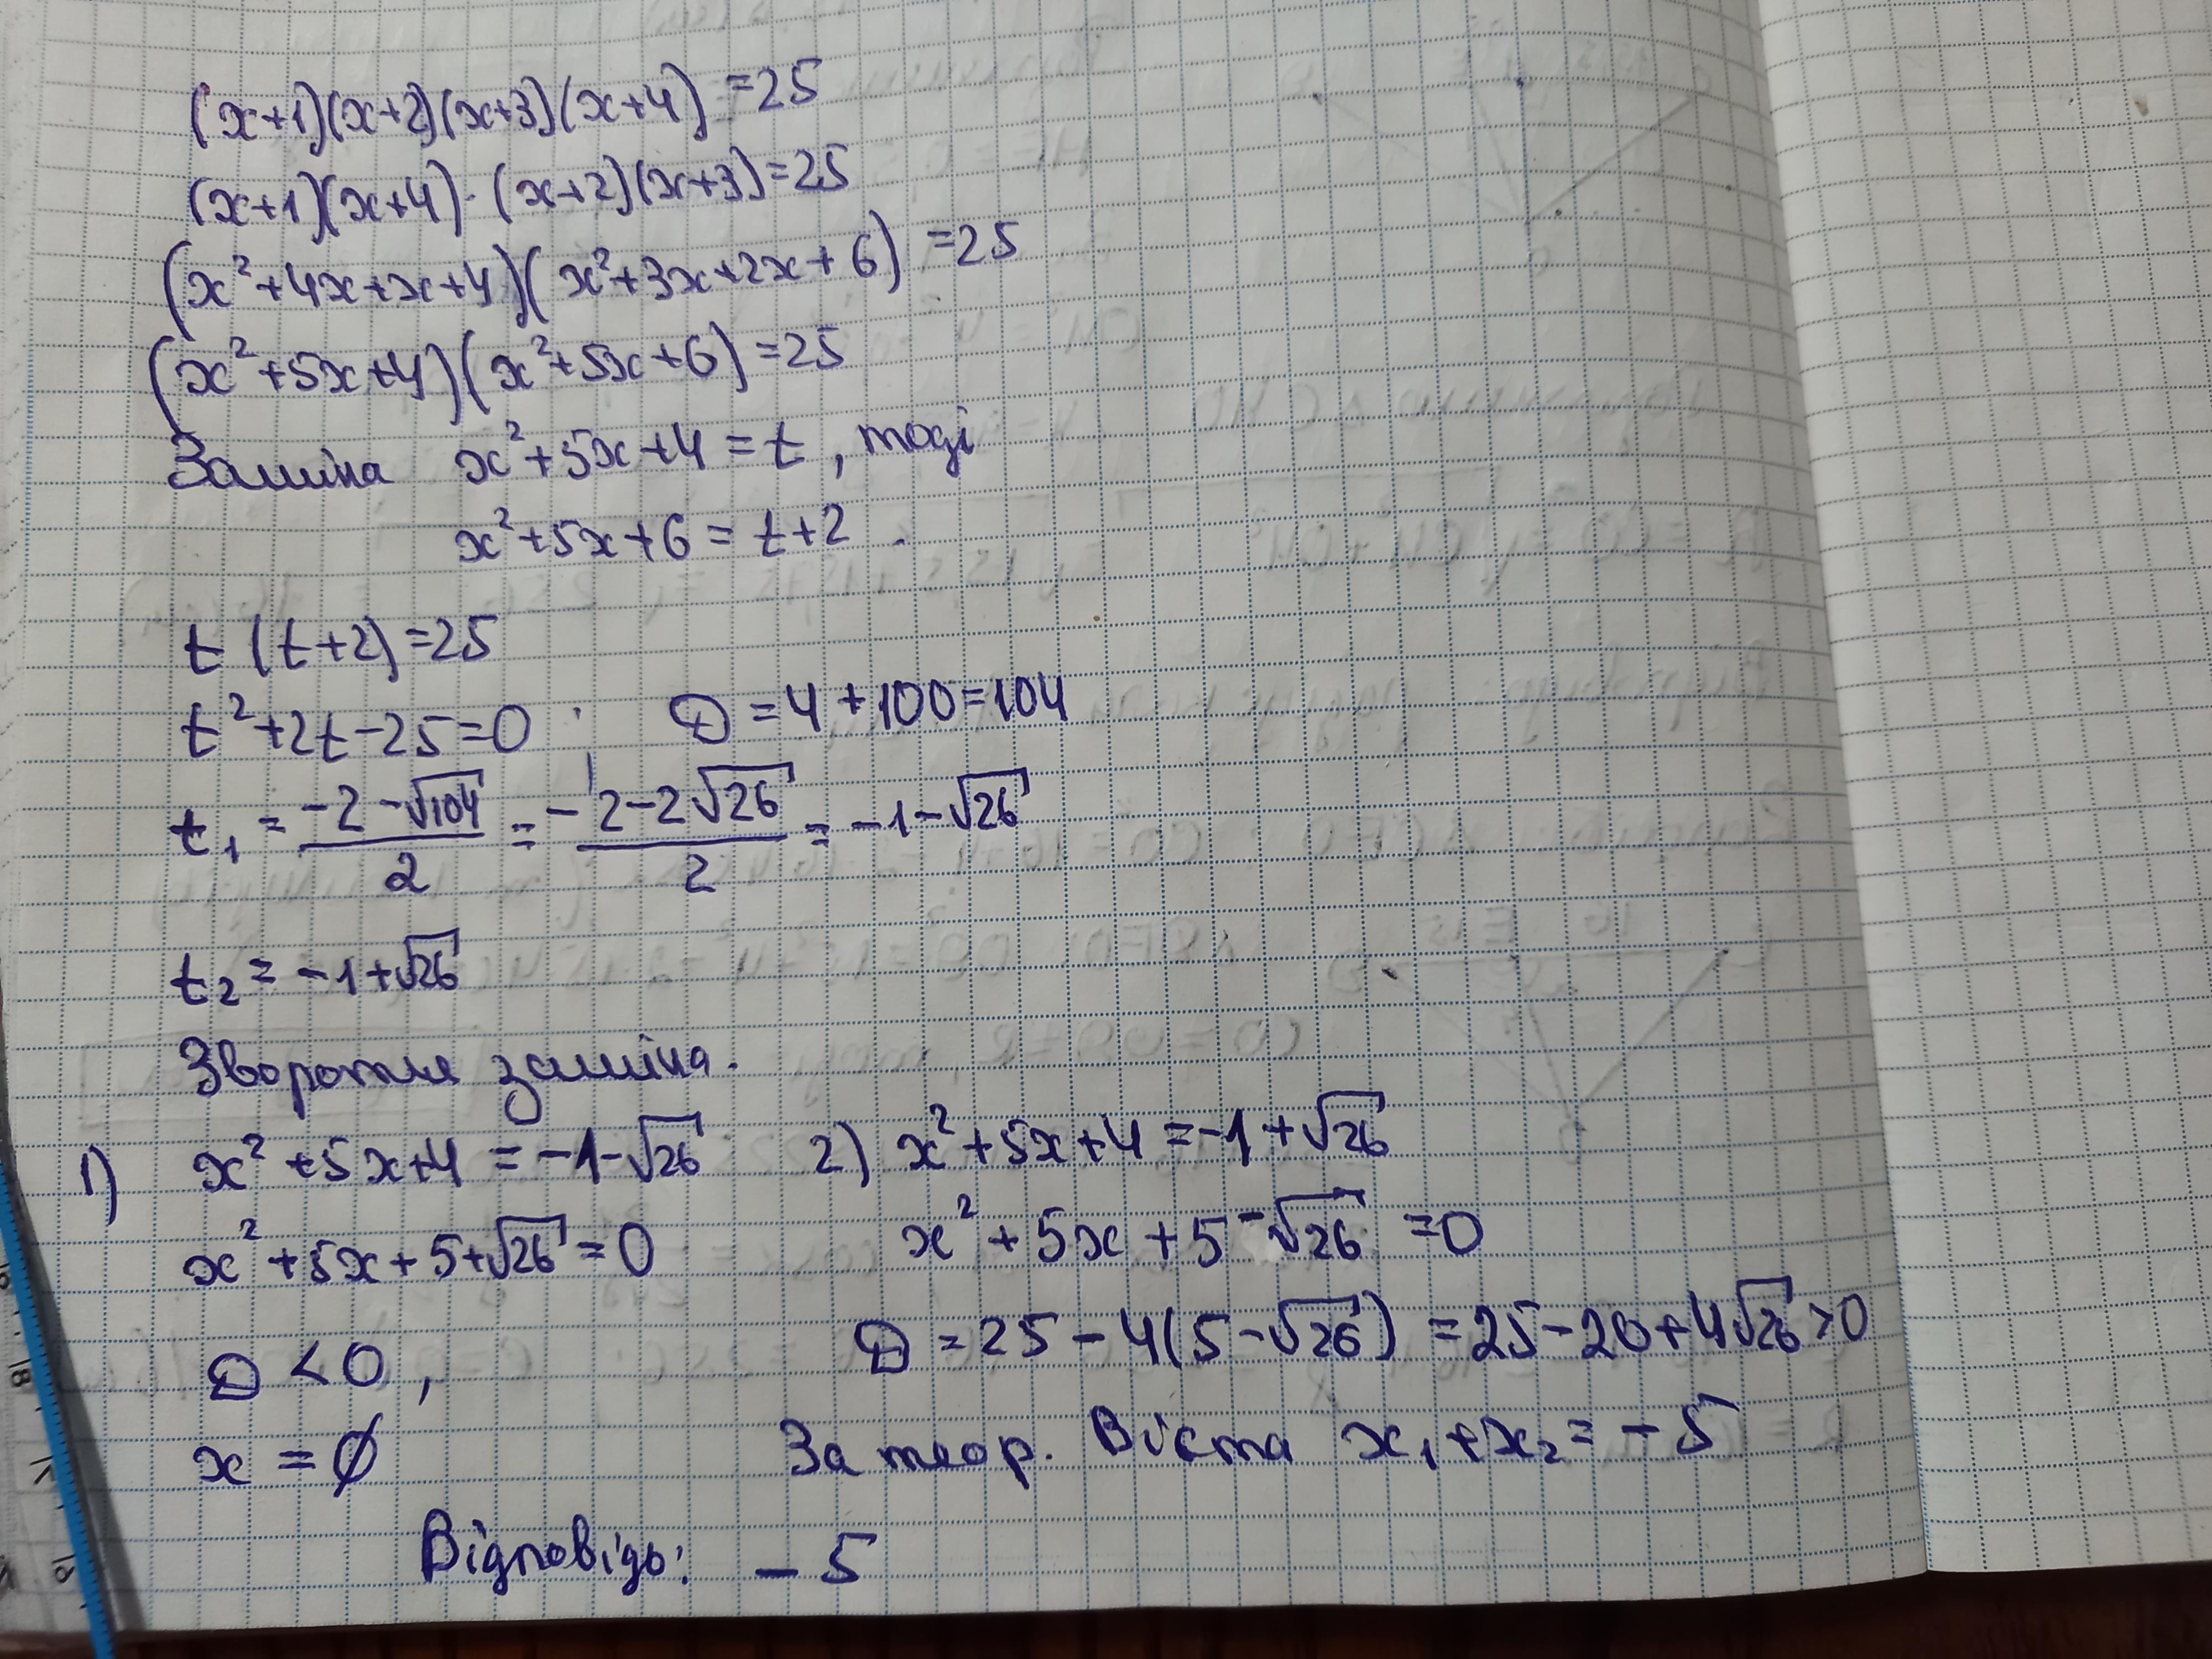 (x+1)(x+2)(x+3)(x+4) =25
(x+1)(x+4)·(x+2)(x+3)=25
(x²+4x+x+4)(x²+3x+2x+6) =25
(x²+5x+4)(x²+5x+6)=25
Заміна x²+5x+4=t, тоді
x²+5x+6=t+2.
t(t+2)=25
t²+2t-25=0; D=4+100=104
t₁ = (-2-√104)/2 = (-2-2√26)/2 = -1-√26
t₂ = -1+√26
Зворотня заміна.
1) x²+5x+4=-1-√26 2) x²+5x+4=-1+√26
x²+5x+5+√26=0 x²+5x+5-√26=0
D<0, D=25-4(5-√26)=25-20+4√26>0
x=∅ За теор. Вієта x₁+x₂=-5
Відповідь: -5